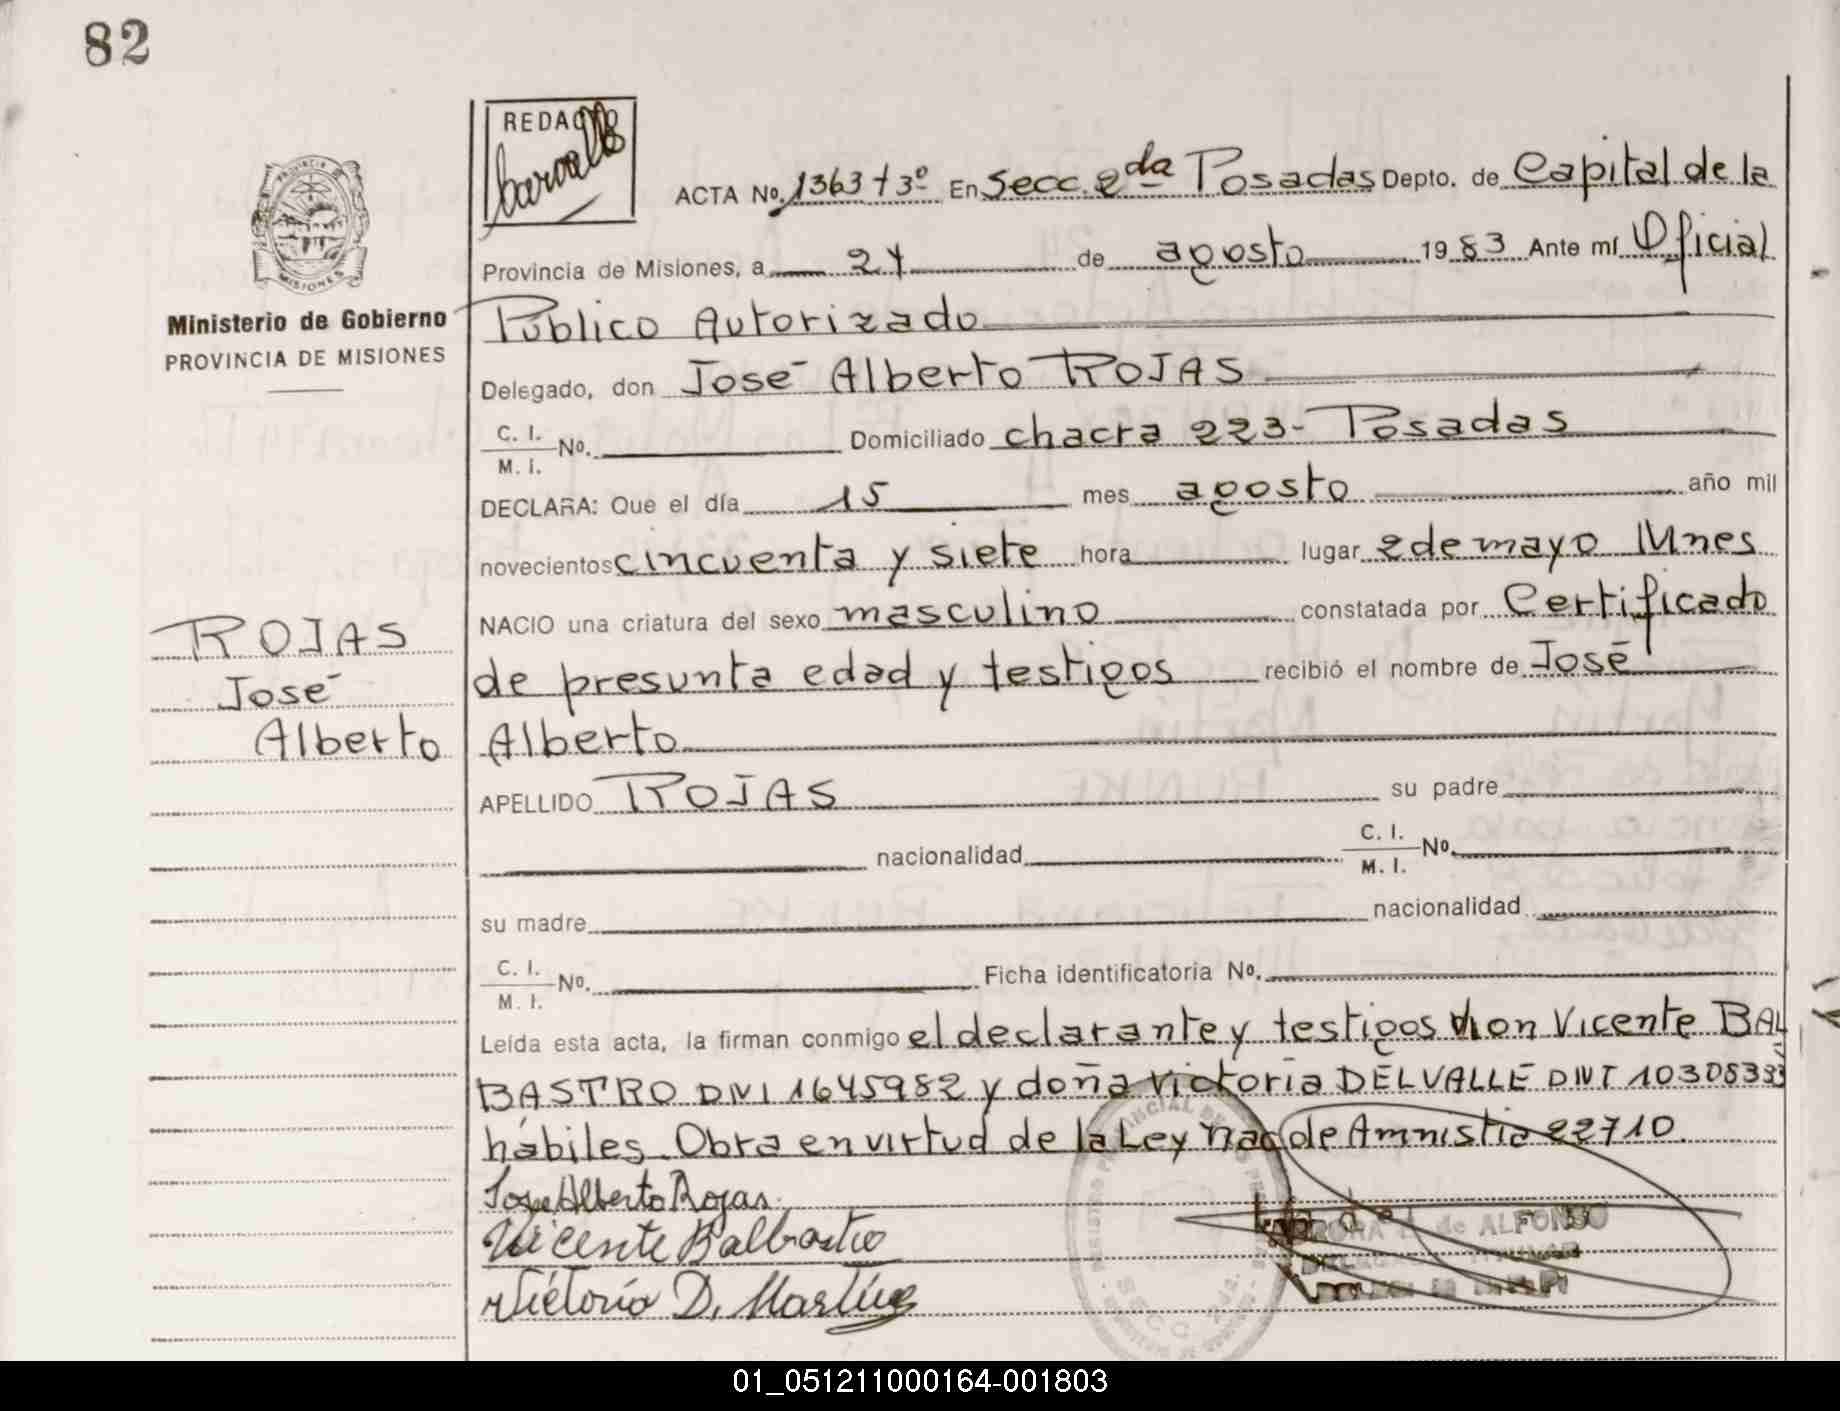 82
REDACTO
ACTA No. 1363 t 3º En Secc. 2da Posadas Depto. de Capital de la
Provincia de Misiones, a 24 de agosto 1983 Ante mí Oficial
Ministerio de Gobierno
PROVINCIA DE MISIONES
Público Autorizado
Delegado, don José Alberto ROJAS
C. I. M. I. No. Domiciliado chacra 223 - Posadas
DECLARA: Que el día 15 mes agosto año mil
novecientos cincuenta y siete hora lugar 2 de mayo Mnes
NACIO una criatura del sexo masculino constatada por Certificado
ROJAS
José
Alberto
de presunta edad y testigos recibió el nombre de José
Alberto
APELLIDO ROJAS su padre
nacionalidad C. I. M. I. No.
su madre nacionalidad
C. I. M. I. No. Ficha identificatoria No.
Leída esta acta, la firman conmigo el declarante y testigos don Vicente BAL
BASTRO DNI 1645982 y doña Victoria DELVALLE DNI
hábiles. Obra en virtud de la Ley Nac de Amnistia 22710.
Jose Alberto Rojas
Vicente Balbastro
Victoria D. Martínez
de ALFONSO
01_051211000164-001803